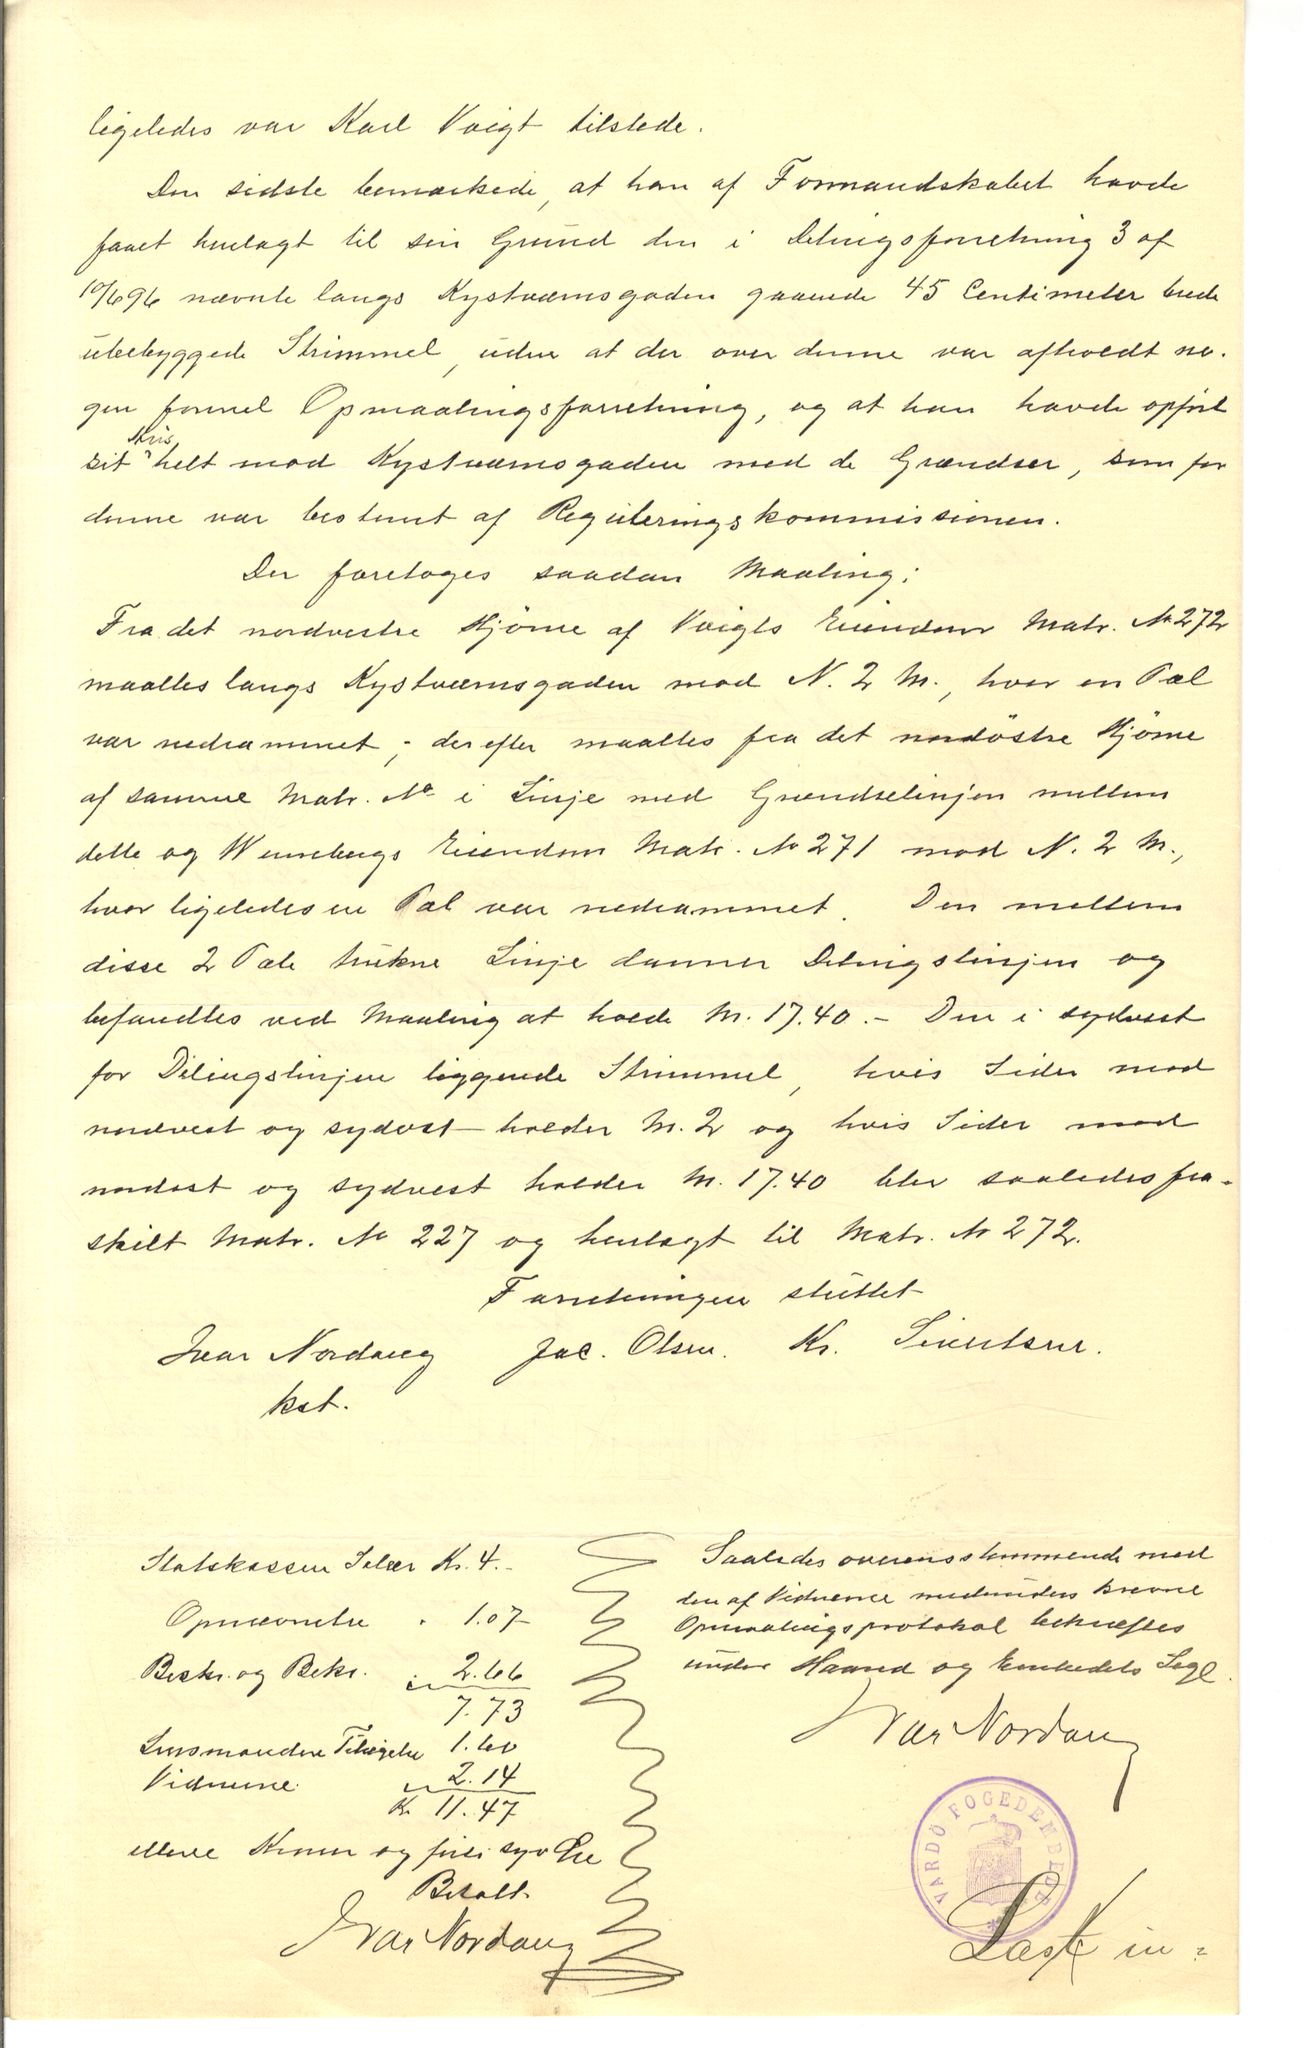 ligeledes var Karl Voigt tilstede.
Den sidste bemærkede, at han af Formandskabet havde
faaet henlagt til sin Grund den i Delingsforretning 3 af
10/6 96 nævnte langs Kystværnsgaden gaaende 45 Centimeter brede
ubebyggede Strimmel, uden at der over denne var afholdt no-
gen formel Opmaalingsforretning, og at han havde opført
sit Hus helt mod Kystværnsgaden med de Grændser, som for
denne var bestemt af Reguleringskommissionen.
Der foretoges saadan Maaling:
Fra det nordvestre Hjørne af Voigts Eiendom Matr. No 272
maaltes langs Kystværnsgaden mod N. 2 M., hvor en Pæl
var nedrammet; derefter maaltes fra det nordöstre Hjørne
af samme Matr. No i Linje med Grændselinjen mellem
dette og Wennebergs Eiendom Matr. No 271 mod N. 2 M.,
hvor ligeledes en Pæl var nedrammet. Den mellem
disse 2 Pæle trukne Linje danner Delingslinjen og
befandtes ved Maaling at holde M. 17.40. – Den i sydvest
for Delingslinjen liggende Strimmel, hvis Sider mod
nordvest og sydost holder M. 2 og hvis Sider mod
nordost og sydvest holder M. 17.40 blev saaledes fra-
skilt Matr. No 227 og henlagt til Matr. No 272.
Forretningen sluttet
Ivar Nordang Jac. Olsen. Kr. Sivertsen.
kst.
Statskassen Salær Kr. 4.-
Opnævnelse " 1.07
Beskr. og Bekr. " 2.66
7.73
Lensmandens Tilsigelse 1.60
Vidnerne " 2.14
Kr 11.47
elleve Kroner og firti syv Øre
Betalt
Ivar Nordang
Saaledes overensstemmende med
den af Vidnerne medunderskrevne
Opmaalingsprotokol bekræftes
under Haand og Embedets Segl.
Ivar Nordang
VARDØ FOGEDEMBEDE
Læst in-